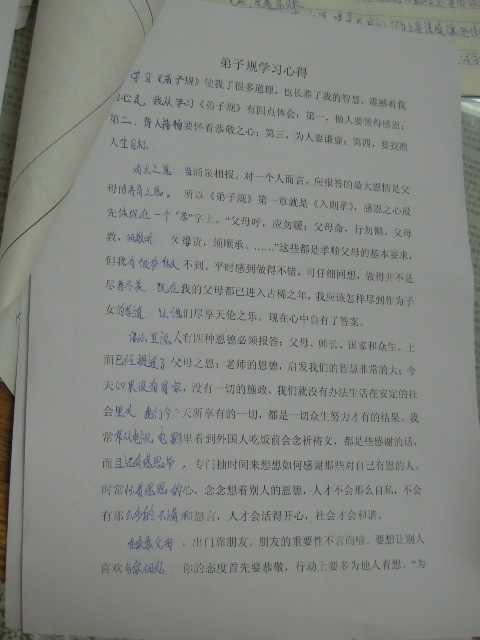 弟子规学习心得
学习《弟子规》使我了很多道理，也长养了我的智慧，震撼着我
的心灵。我从学习《弟子规》有四点体会：第一，做人要懂得感恩；
第二、待人接物要怀着恭敬之心；第三，为人要谦虚；第四，要找准
人生目标。
滴水之恩 当涌泉相报。对一个人而言，应报答的最大恩情是父
母的养育之恩。 所以《弟子规》第一章就是《入则孝》，感恩之心最
先体现在一个“孝”字上。“父母呼，应勿缓；父母命，行勿懒。父母
教，须敬听 父母责，须顺承。……”这些都是孝顺父母的基本要求，
但我有很多做 不到。平时感到做得不错，可仔细回想，做得并不是
尽善尽美 现在我的父母都已进入古稀之年，我应该怎样尽到作为子
女的孝道 让他们尽享天伦之乐。现在心中自有了答案。
人有四种恩德必须报答：父母、师长、国家和众生。上
面已经报道了父母之恩；老师的恩德，启发我们的智慧非常的大；今
天如果没有国家，没有一切的施政，我们就没有办法生活在安定的社
会里头 我们今天所享有的一切，都是一切众生努力才有的结果。我
常常从电视 电影里看到外国人吃饭前会念祈祷文，都是些感谢的话，
而且还有感恩节，专门抽时间来想想如何感谢那些对自己有恩的人。
时常怀着感恩的心，念念想着别人的恩德，人才不会那么自私，不会
有那么多的不满和怨言，人才会活得开心，社会才会和谐。
在家靠父母，出门靠朋友。朋友的重要性不言而喻。要想让别人
喜欢与你相处 你的态度首先要恭敬，行动上要多为他人着想。“为